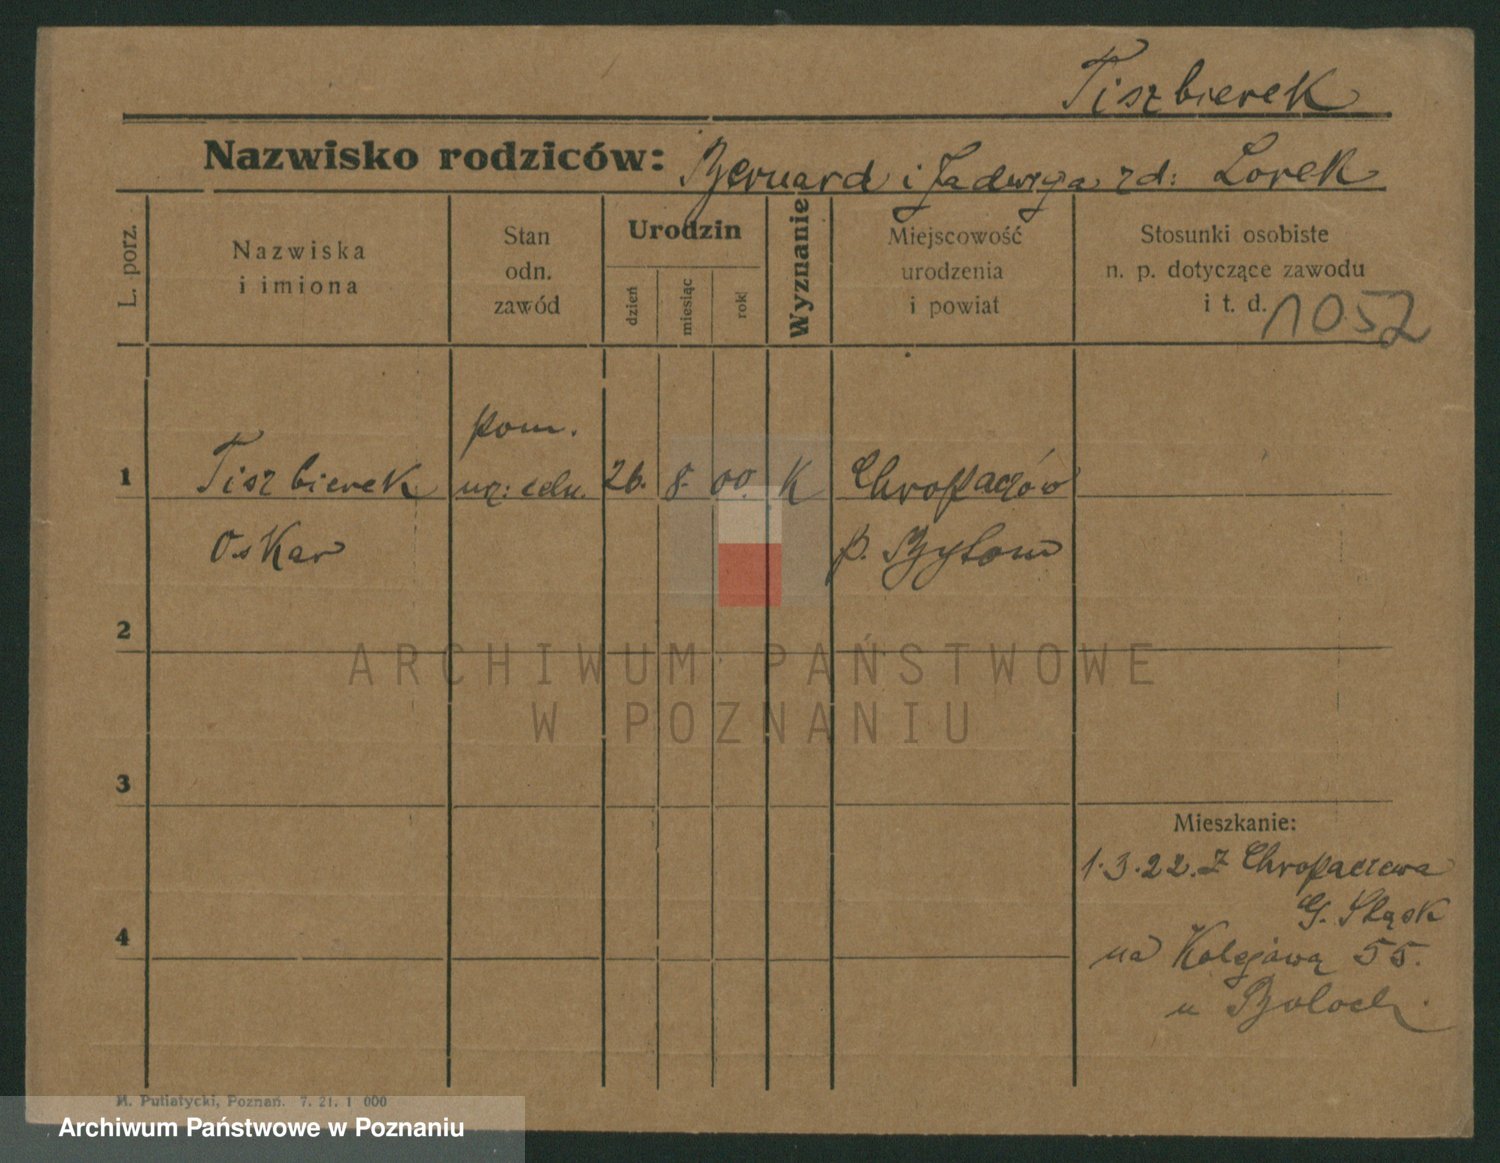 Tiszbierek
Nazwisko rodziców: Bernard i Jadwiga zd: Lorek
L. porz.
Nazwiska
i imiona
Stan
odn.
zawód
Urodzin
dzień
miesiąc
rok
Wyznanie
Miejscowość
urodzenia
i powiat
Stosunki osobiste
n. p. dotyczące zawodu
i t. d. 1052
pom.
1 Tiszbierek urz: celn. 26. 8. 00. K Chropaczów
Oskar p. Bytom
2
ARCHIWUM PAŃSTWOWE
W POZNANIU
3
Mieszkanie:
1.3.22. z Chropaczewa
G. Śląsk
4
na Kolejową 55.
u
M. Putiatycki, Poznań. 7. 21. 1 000
Archiwum Państwowe w Poznaniu